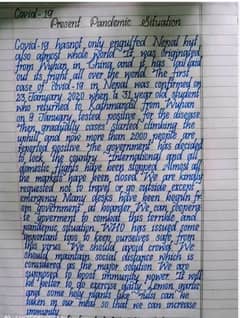 Covid-19
Present Pandemic Situation
Covid-19 hasnot only engulfed Nepal but
also almost whole world. It was originated
from Wuhan in China and it has spread
out its fright all over the world. The first
case of Covid-19 in Nepal was confirmed on
23 January, 2020 when a 31 year old student
who returned to Kathmandu from Wuhan
on 9 January, tested positive for the disease
Then gradually cases started climbing the
uphill and now more than 2000 people are
reported positive. The government has decided
to lock the country. International and all
domestic flights have been stopped. Almost all
the markets have been closed. We are kindly
requested not to travel or go outside except
emergency. Many desks have been
government at boarder. We can
to goverment to combat this terrible and
pandemic situation. WHO has issued some
important tips to keep ourselves safe from
this virus. We should avoid crowd. We
should maintain social distance which is
considered as the major solution. We are
to boost immunity power. It will
be better to do exercise daily. Lemon, garlic
and some holy plants like can be
taken in our meal so that we can increase
immunity.